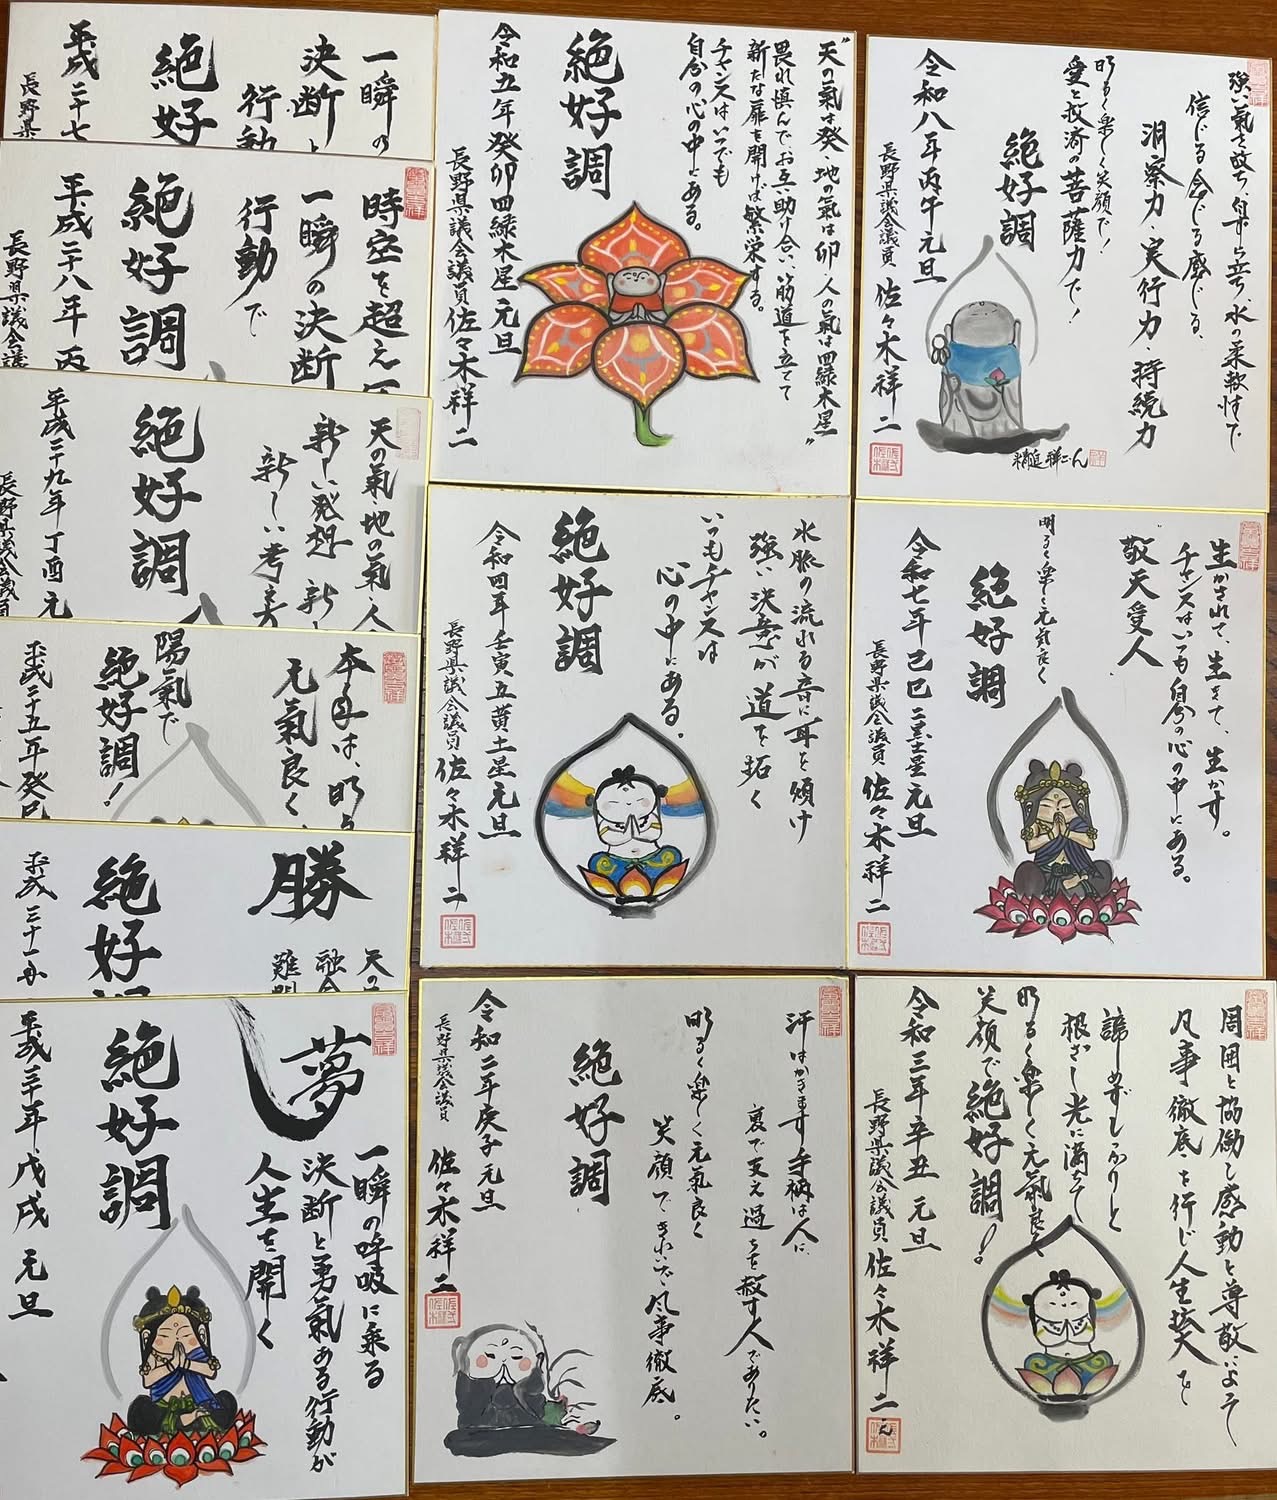 一瞬の
決断と
行動
絶好
平成二十七
長野県
時空を超え
一瞬の決断
行動で
絶好調
平成二十八年 丙
長野県議会議
天の氣地の氣人
新しい発想 新し
新しい考え方
絶好調
平成二十九年 丁酉 元
長野県議会議員
本年は、明る
元氣良く
陽氣で
絶好調!
平成二十五年癸巳
勝
天の
融合
難関
絶好
平成三十一年
夢
一瞬の呼吸に乗る
決断と勇氣ある行動が
人生を開く
絶好調
平成三十年 戊戌 元旦
"天の氣は癸・地の氣は卯・人の氣は四緑木星"
畏れ慎んでお互い助け合い、筋道を立てて
新たな扉を開けば繁栄する。
チャンスはいつでも
自分の心の中にある。
絶好調
令和五年 癸卯 四緑木星 元旦
長野県議会議員 佐々木祥二
水脈の流れる音に耳を傾け
強い決意が道を拓く
いつもチャンスは
心の中にある。
絶好調
令和四年 壬寅 五黄土星 元旦
長野県議会議員 佐々木祥二
汗はかきます手柄は人に、
裏で支え過ちを赦す人でありたい。
明るく楽しく元氣良く
笑顔できれいで凡事徹底。
絶好調
令和二年 庚子 元旦
長野県議会議員 佐々木祥二
強い氣を放ち、自立ち、水の柔軟性で
信じる念じる感じる、
洞察力・実行力 持続力
明るく楽しく笑顔で!
愛と救済の菩薩力で!
絶好調
令和八年 丙午 元旦
長野県議会議員 佐々木祥二
精進 祥二
生かされて、生きて、生かす。
チャンスはいつも自分の心の中にある。
敬天愛人
明るく楽しく元氣良く
絶好調
令和七年 乙巳 二黒土星 元旦
長野県議会議員 佐々木祥二
周囲と協働し感動と尊敬によって
凡事徹底を行じ人生を
諦めずしっかりと
根ざし光に満ちて
明るく楽しく元氣良く
笑顔で絶好調!
令和三年 辛丑 元旦
長野県議会議員 佐々木祥二